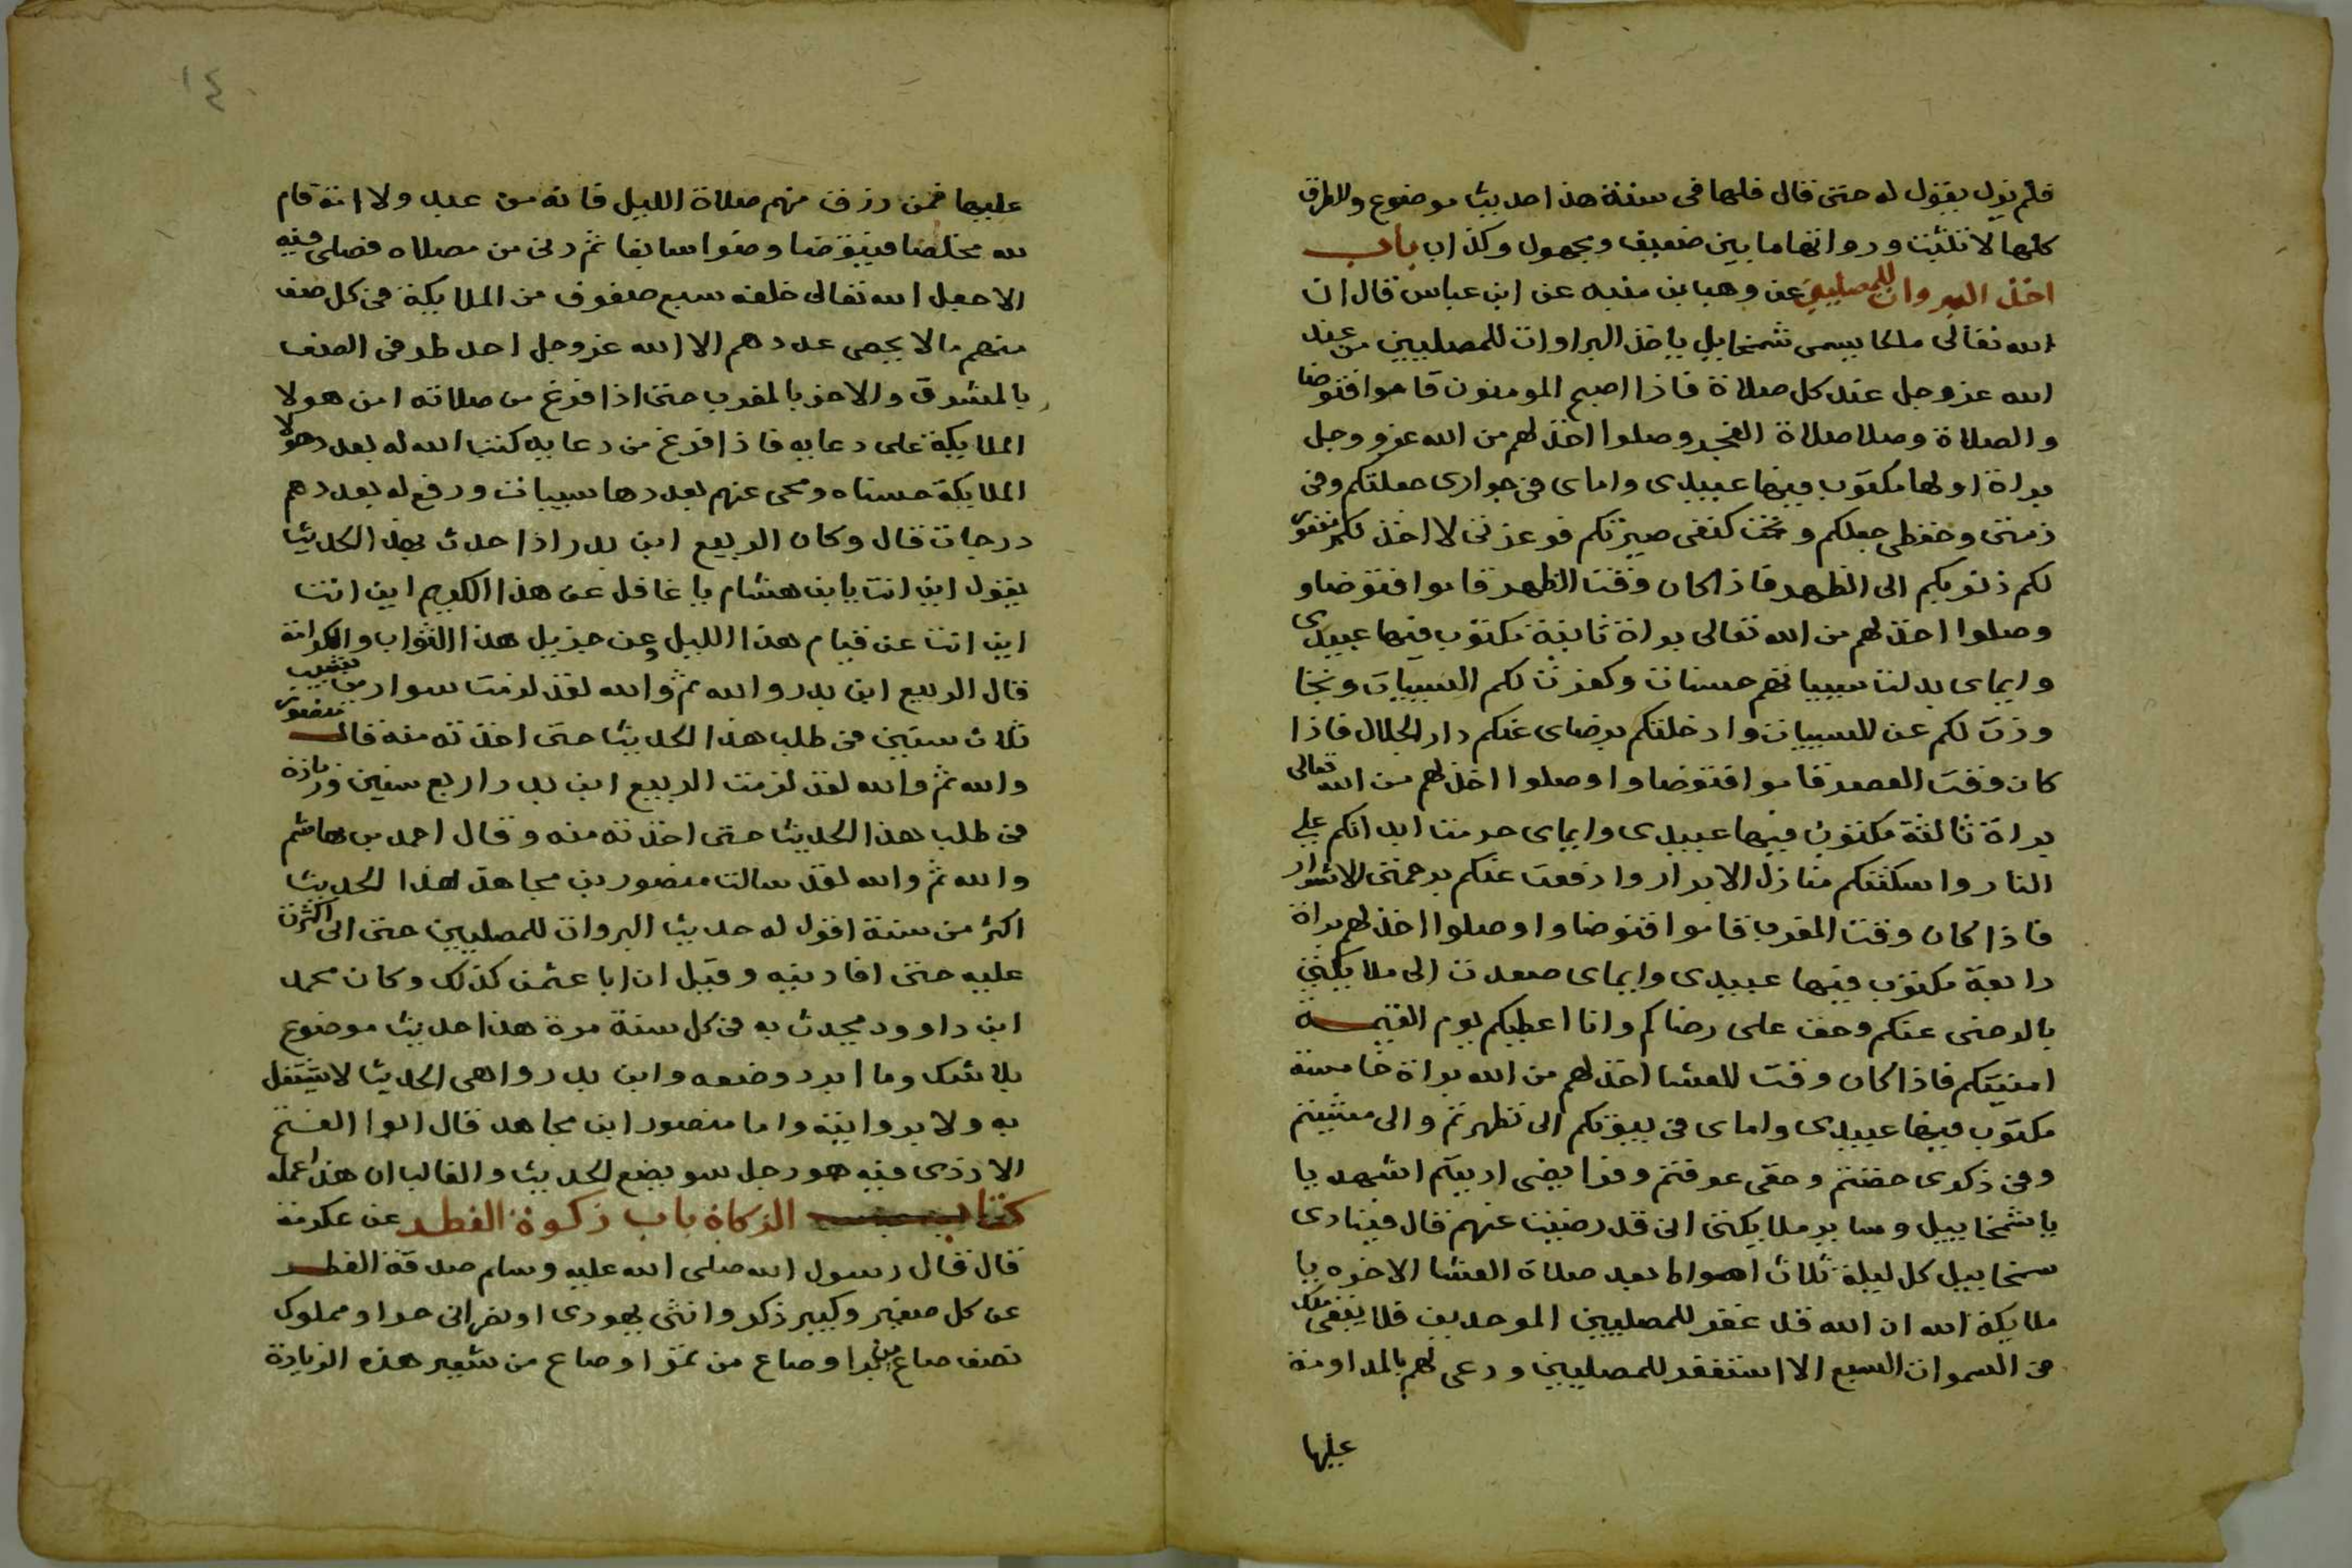 فلم يزل يقول له حتى قال قلها في سنة هذا حديث موضوع والطرق
كلها لا تثبت ورواتها ما بين ضعيف ومجهول وكذاب باب
اخذ البروات للمصليين عن وهب بن منبه عن ابن عباس قال ان
الله تعالى ملكا يسمى شمخاييل ياخذ البراوات للمصليين من عند
الله عز وجل عند كل صلاة فاذا اصبح المومنون قاموا فتوضا
والصلاة وصلا صلاة الفجر وصلوا اخذ لهم من الله عز وجل
براة اولها مكتوب فيها عبيدي واماي في جواري جعلتكم وفي
ذمتي وحفظي جعلكم وتحت كنفي صيرتكم فوعزتي لا اخذلكم مغفور
لكم ذنوبكم الى الظهر فاذا كان وقت الظهر قاموا فتوضاو
وصلوا اخذ لهم من الله تعالى براة ثانية مكتوب فيها عبيدي
وايماي بدلت سيياتهم حسنات وكفرت لكم السييات وتجا
وزت لكم عن السييات وادخلتكم برضاي عنكم دار الجلال فاذا
كان وقت العصر قاموا فتوضاوا وصلوا اخذ لهم من الله تعالى
براة ثالثة مكتوب فيها عبيدي وايماي حرمت ابدانكم على
النار واسكنتكم منازل الابرار وادفعت عنكم برحمتي الاشرار
فاذا كان وقت المغرب قاموا فتوضاوا وصلوا اخذ لهم براة
رابعة مكتوب فيها عبيدي وايماي صعدت الى ملايكتي
بالرضى عنكم وحق على رضاكم وانا اعطيكم يوم القيمة
امنيتكم فاذا كان وقت العشا اخذ لهم من الله براة خامسة
مكتوب فيها عبيدي واماي في بيوتكم الى تطهرتم والى مشيتم
وفي ذكرى خضتم وحقي عرفتم وفرايضى اديتم اشهد يا
يا شمخاييل وساير ملايكتي اني قد رضيت عنهم قال فينادى
سمخاييل كل ليلة ثلاث اهواط بعد صلاة العشا الاخره يا
ملايكة الله ان الله قد غفر للمصليين الموحدين فلا يبقى ملك
في السموات السبع الا استغفر للمصليين ودعى لهم بالمداومة
عليها
١٤
عليها فمن رزق منهم صلاة الليل فانه من عبد ولا امة قام
لله مخلصا فيتوضا وضوا سابغا ثم دنى من مصلاه فصلى فيه
الا جعل الله تعالى خلفه سبع صفوف من الملايكة في كل صف
منهم مالا يحصى عددهم الا الله عز وجل احد طرفى الصف
بالمشرق والاخر بالمغرب حتى اذا فرغ من صلاته امن هولا
الملايكة على دعايه فاذا فرغ من دعايه كتب الله له بعدد هولا
الملايكة حسناه ومحى عنهم بعددها سييات ورفع له بعددهم
درجات قال وكان الربيع ابن بدر اذا حدث بهذا الحديث
يقول اين انت يابن هشام يا غافل عن هذا الكريم اين انت
اين انت عن قيام هذا الليل وعن جزيل هذا الثواب والكرامة
قال الربيع ابن بدر والله ثم والله لقد لزمت سوار من شبيب
ثلاث سنين في طلب هذا الحديث حتى اخذته منه قال
والله ثم والله لقد لزمت الربيع ابن بدر اربع سنين وزيادة
في طلب هذا الحديث حتى اخذته منه وقال احمد بن هاشم
والله ثم والله لقد سالت منصور بن مجاهد لهذا الحديث
اكثر من سنة اقول له حديث البروات للمصليين حتى اني اكثرت
عليه حتى افادنيه وقيل ان ابا عثمن كذلك وكان محمد
ابن داوود يحدث به في كل سنة مرة هذا حديث موضوع
بلا شك وما ابرد وضعه وابن بدر واهي الحديث لا يشتغل
به ولا بروايته واما منصور ابن مجاهد قال ابوا الفتح
الازدى فيه هو رجل سو يضع الحديث والغالب ان هذا عمله
كتاب الزكاة باب زكوة الفطر عن عكرمة
قال قال رسول الله صلى الله عليه وسلم صدقة الفطر
عن كل صغير وكبير ذكر وانثى يهودى او نصراني حر او مملوك
نصف صاع من برا وصاع من تمر او صاع من شعير هذه الزيادة